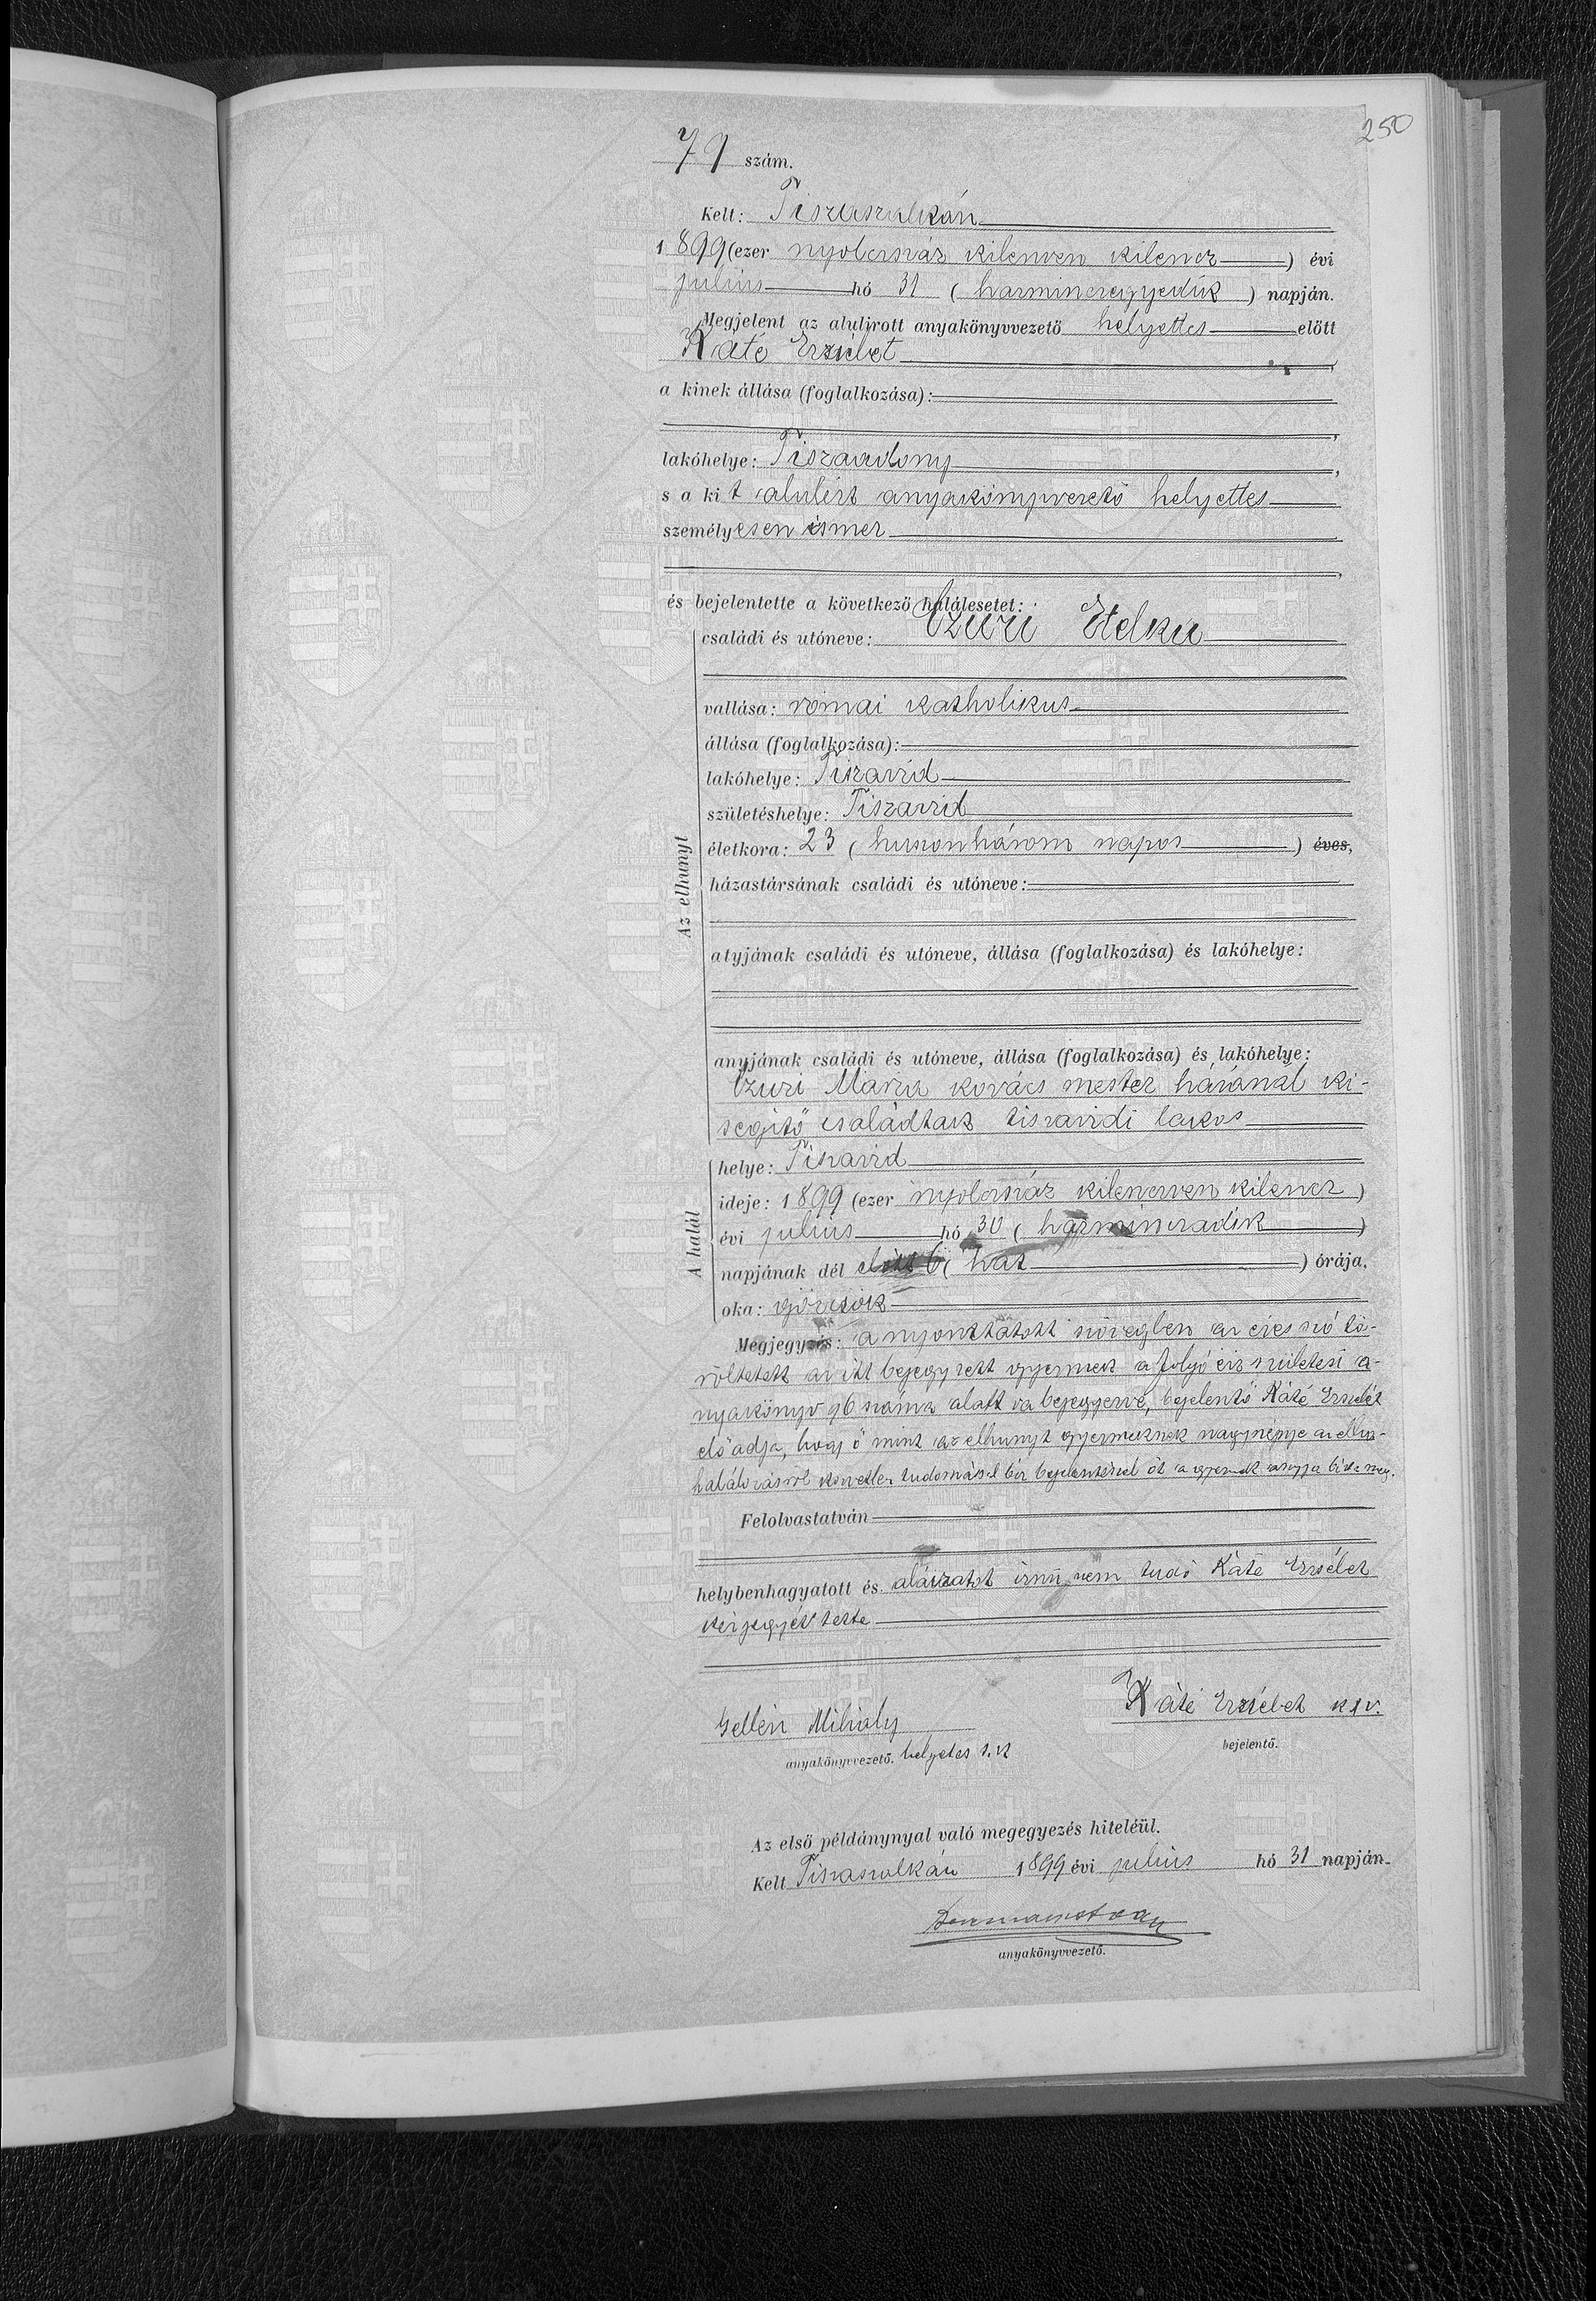 250
79 szám.
Kelt: Tiszaszalkán
1899 (ezer nyolczszáz kilenczven kilencz) évi
julius hó 31 (harminczegyedik) napján.
Megjelent az alulirott anyakönyvvezető helyettes előtt
Káté Erzsébet,
a kinek állása (foglalkozása):
lakóhelye: Tiszaadony,
s a kit alulírt anyakönyvvezető helyettes
személyesen ismer
és bejelentette a következő halálesetet:
családi és utóneve: Czuri Etelka
vallása: római katholikus
állása (foglalkozása):
lakóhelye: Tiszavid
születéshelye: Tiszavid
életkora: 23 (huszonhárom napos) éves,
házastársának családi és utóneve:
Az elhunyt
atyjának családi és utóneve, állása (foglalkozása) és lakóhelye:
anyjának családi és utóneve, állása (foglalkozása) és lakóhelye:
Czuri Mária kovács mester házánál ki-
segítő családtag tiszavidi lakos
A halál
helye: Tiszavid
ideje: 1899 (ezer nyolczszáz kilenczven kilencz)
évi julius hó 30 (harminczadik)
napjának dél előtt 6 (hat) órája.
oka: görcsök
Megjegyzés: a nyomtatott szövegben az éves szó tö-
röltetett az itt bejegyzett gyermek a folyó évi születési a-
nyakönyv 96 száma alatt va bejegyezve, bejelentő Káté Erzsébet
előadja, hogy ő mint az elhunyt gyermeknek nagynénje az
halálozásról közvetlen tudomással bír bejelentésével őt a gyermek anyja bízta meg.
Felolvastatván
helybenhagyatott és aláíratott írni nem tudó Káté Erzsébet
kézjegyével tette
Gellén Mihály
anyakönyvvezető. helyetes s.k
Káté Erzsébet kzv.
bejelentő.
Az első példánynyal való megegyezés hiteléül.
Kelt Tiszaszalkán 1899 évi julius hó 31 napján.
anyakönyvvezető.